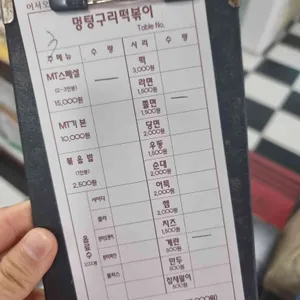 어서오
멍텅구리떡볶이
Table No.
주메뉴 수량 사리 수량
MT스페셜
(2~3인분)
15,000원
MT기본
10,000원
볶음밥
(1인분)
2,500원
음료수
사이다
콜라
떡
3,000원
라면
1,500원
쫄면
1,500원
당면
2,000원
우동
1,500원
순대
2,000원
어묵
2,000원
햄
2,000원
치즈
1,500원
계란
500원
만두
500원
참새말이
500원